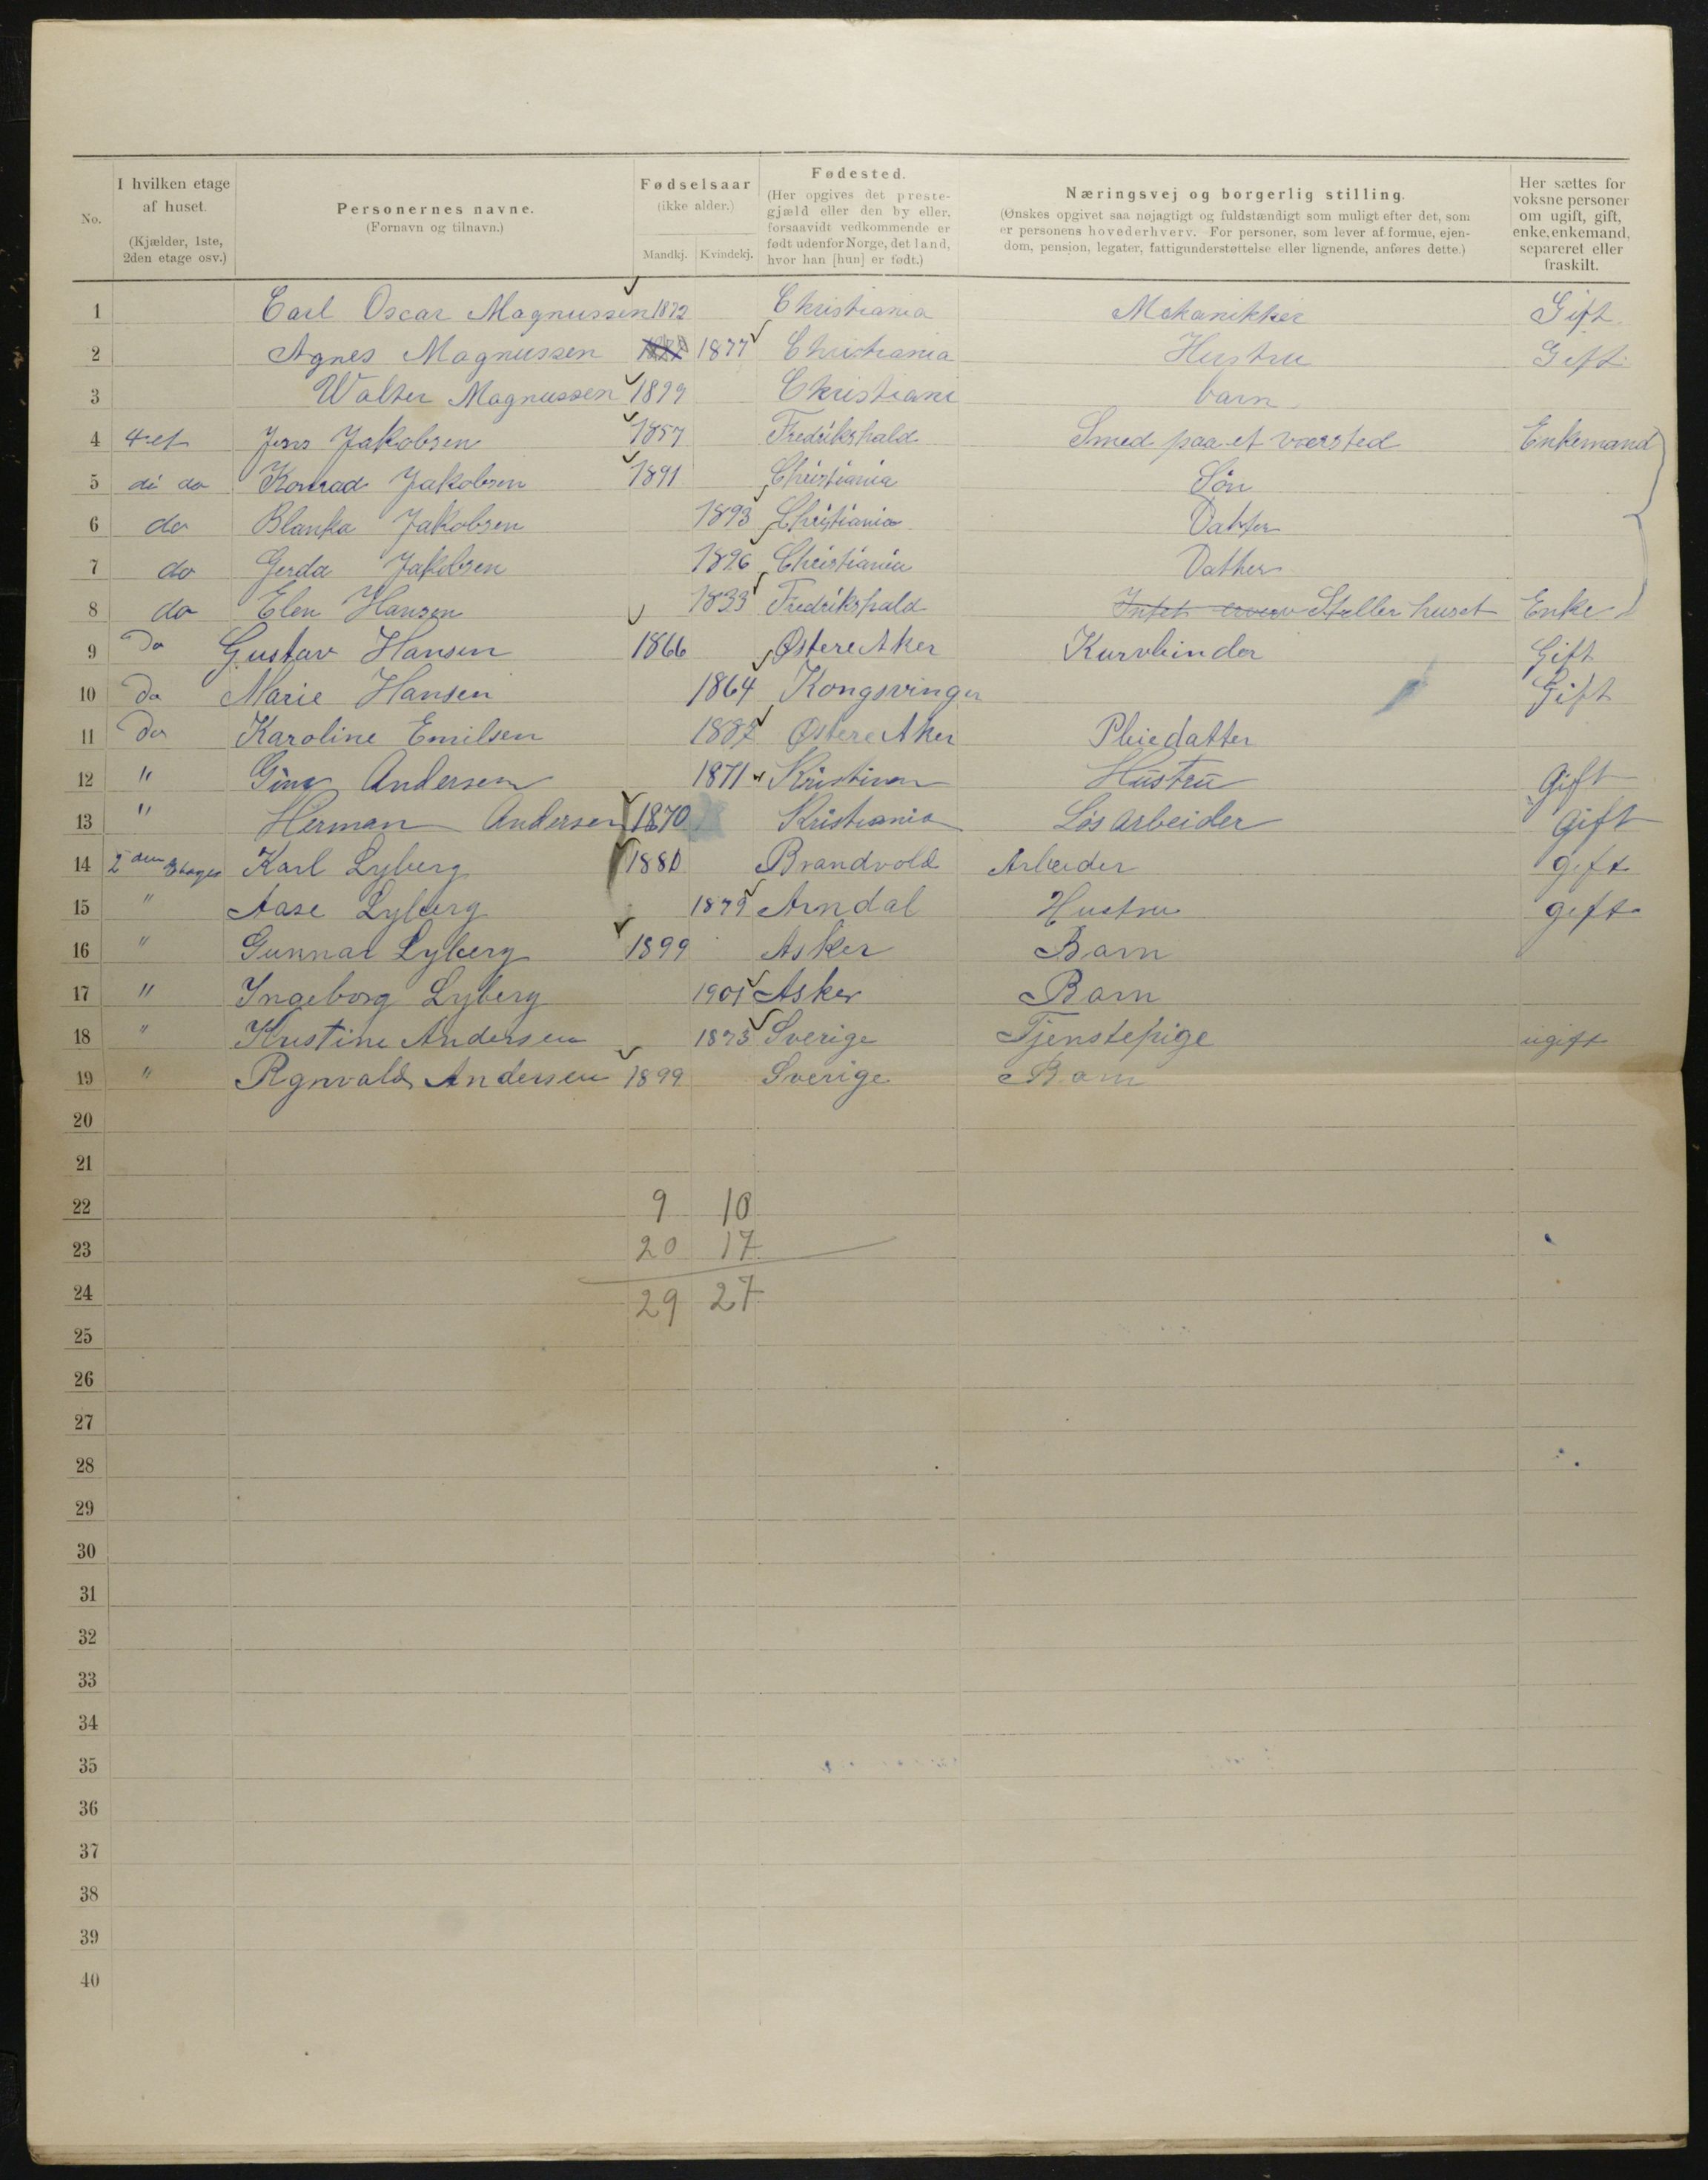 No.
I hvilken etage
af huset.
(Kjælder, 1ste,
2den etage osv.)
Personernes navne.
(Fornavn og tilnavn.)
Fødselsaar
(ikke alder.)
Mandkj. Kvindekj.
Fødested.
(Her opgives det preste-
gjæld eller den by eller,
forsaavidt vedkommende er
født udenfor Norge, det land,
hvor han [hun] er født.)
Næringsvej og borgerlig stilling.
(Ønskes opgivet saa nøjagtigt og fuldstændigt som muligt efter det, som
er personens hovederhverv. For personer, som lever af formue, ejen-
dom, pension, legater, fattigunderstøttelse eller lignende, anføres dette.)
Her sættes for
voksne personer
om ugift, gift,
enke, enkemand,
separeret eller
fraskilt.
1 Carl Oscar Magnussen 1872 Christiania Mekanikker Gift
2 Agnes Magnussen 1877 Christiania Hustru Gift
3 Walter Magnussen 1899 Christiani barn
4 4 et Jens Jakobsen 1857 Fredrikshald Smed paa et værsted Enkemand
5 di do Konrad Jakobsen 1891 Christiania Søn
6 do Blanka Jakobsen 1893 Christiania Datter
7 do Gerda Jakobsen 1896 Christiania Datter
8 do Elen Hansen 1833 Fredrikshald Intet erverv Steller huset Enke
9 Do Gustav Hansen 1866 Østere Aker Kurvbinder Gift
10 Do Marie Hansen 1864 Kongsvinger Gift
11 Do Karoline Emilsen 1887 Østere Aker Pleiedatter
12 " Gina Andersen 1871 Kristiania Hustru Gift
13 " Herman Andersen 1870 Kristiania Løs arbeider Gift
14 2den Etages Karl Lyberg 1880 Brandvold Arbeider gift
15 " Aase Lyberg 1879 Arndal Hustru gift
16 " Gunnar Lyberg 1899 Asker Barn
17 " Ingeborg Lyberg 1901 Asker Barn
18 " Kristine Andersen 1873 Sverige Tjenstepige ugift
19 " Rgnvald Andersen 1899 Sverige Barn
20
21
22 9 10
23 20 17
24 29 27
25
26
27
28
29
30
31
32
33
34
35
36
37
38
39
40